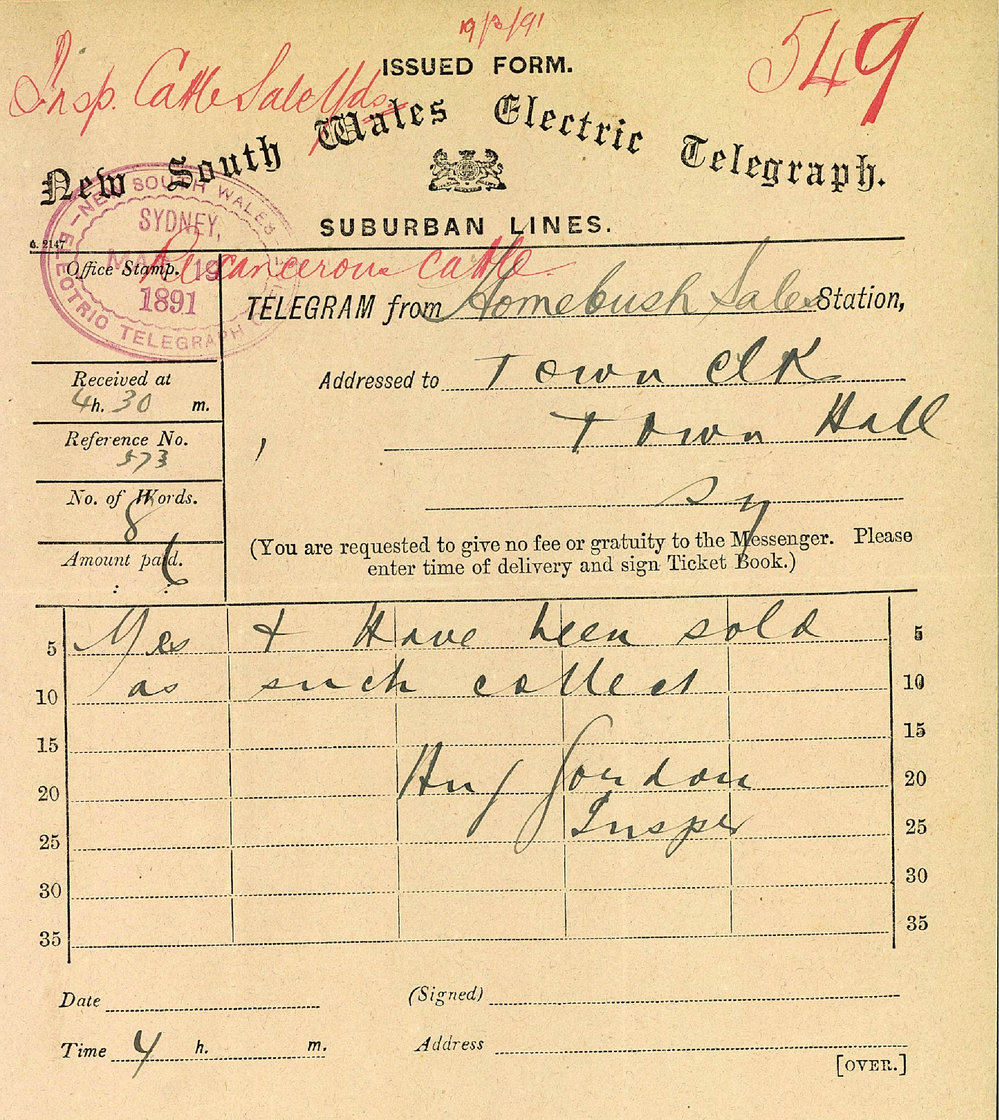 19/3/91
549
Insp. Cattle Sale Yds.
ISSUED FORM.
New South Wales Electric Telegraph.
SUBURBAN LINES.
G. 2147
NEW SOUTH WALES
SYDNEY,
MAR 19
1891
ELECTRIC TELEGRAPH
Office Stamp.
Re cancerous cattle
TELEGRAM from Homebush Sale Station,
Addressed to Town Clk
Town Hall
Sy
Received at
4h. 30 m.
Reference No.
573
No. of Words.
8
Amount paid.
: 6
(You are requested to give no fee or gratuity to the Messenger. Please
enter time of delivery and sign Ticket Book.)
5 Yes & Have been sold 5
10 as such collect 10
15 15
20 Gordon 20
25 Insper 25
30 30
35 35
Date (Signed)
Time 4 h. m. Address
[OVER.]